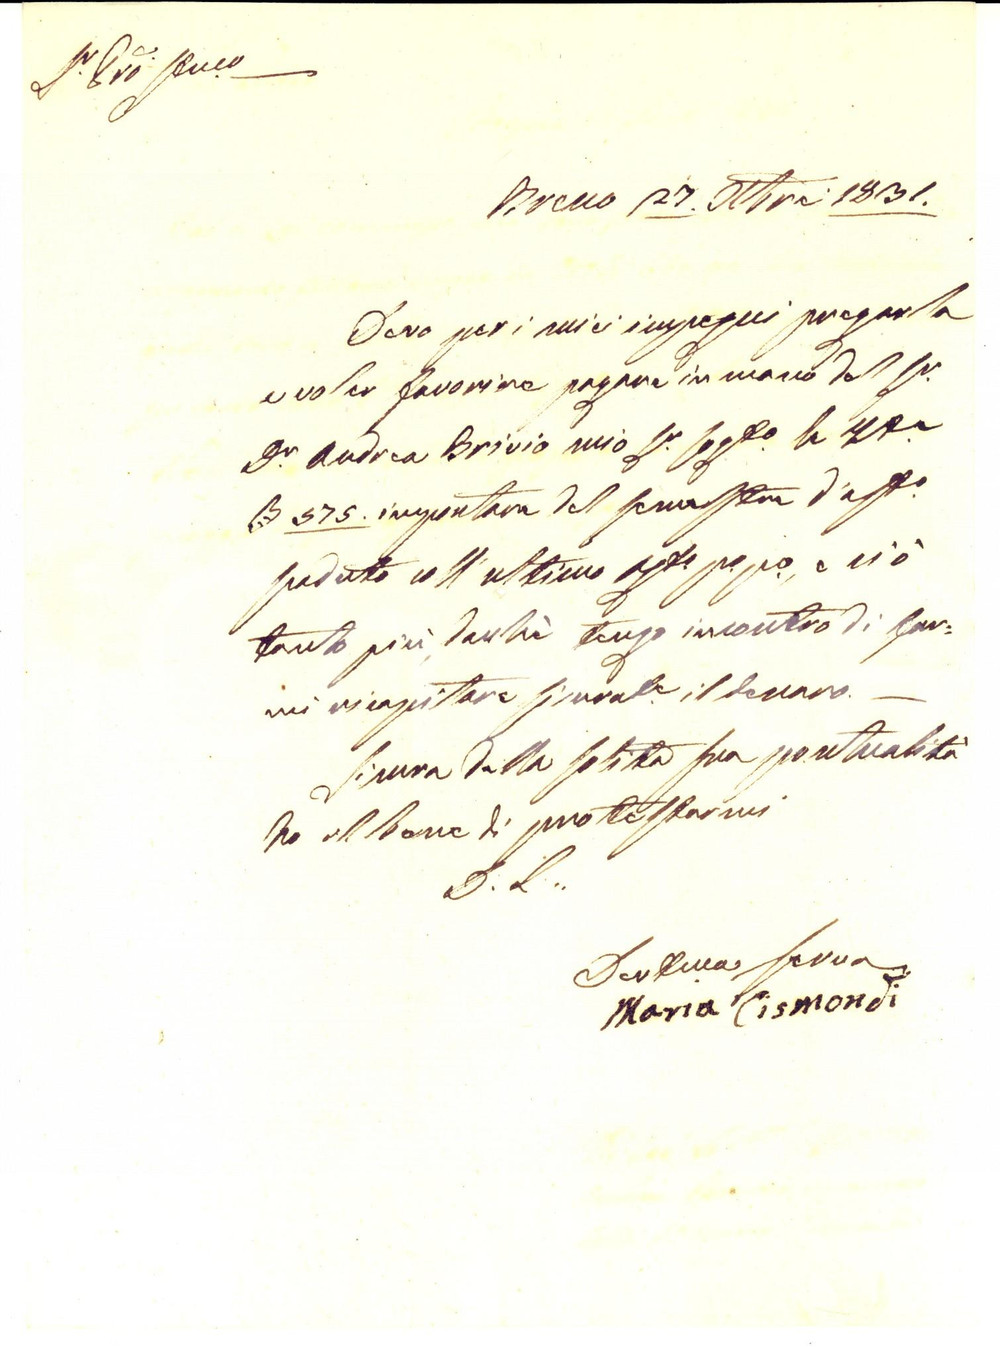 Sr. Prō. Stmo
Breno 27. Ottbre 1831.
Devo per i miei impegni pregarla
a voler favorire pagare in mano del Sr.
Dr. Andrea Brivio mio Sr.
375. importare del semestre d'affto
scaduto coll'ultimo agto. po. po., e ciò
tanto più, dachè tengo incontro di far=
mi ricapitare sicurate. il denaro. —
Sicura della solita sua pontualità
ho il bene di protestarmi
D. L..
Devtma serva
Maria Gismondi